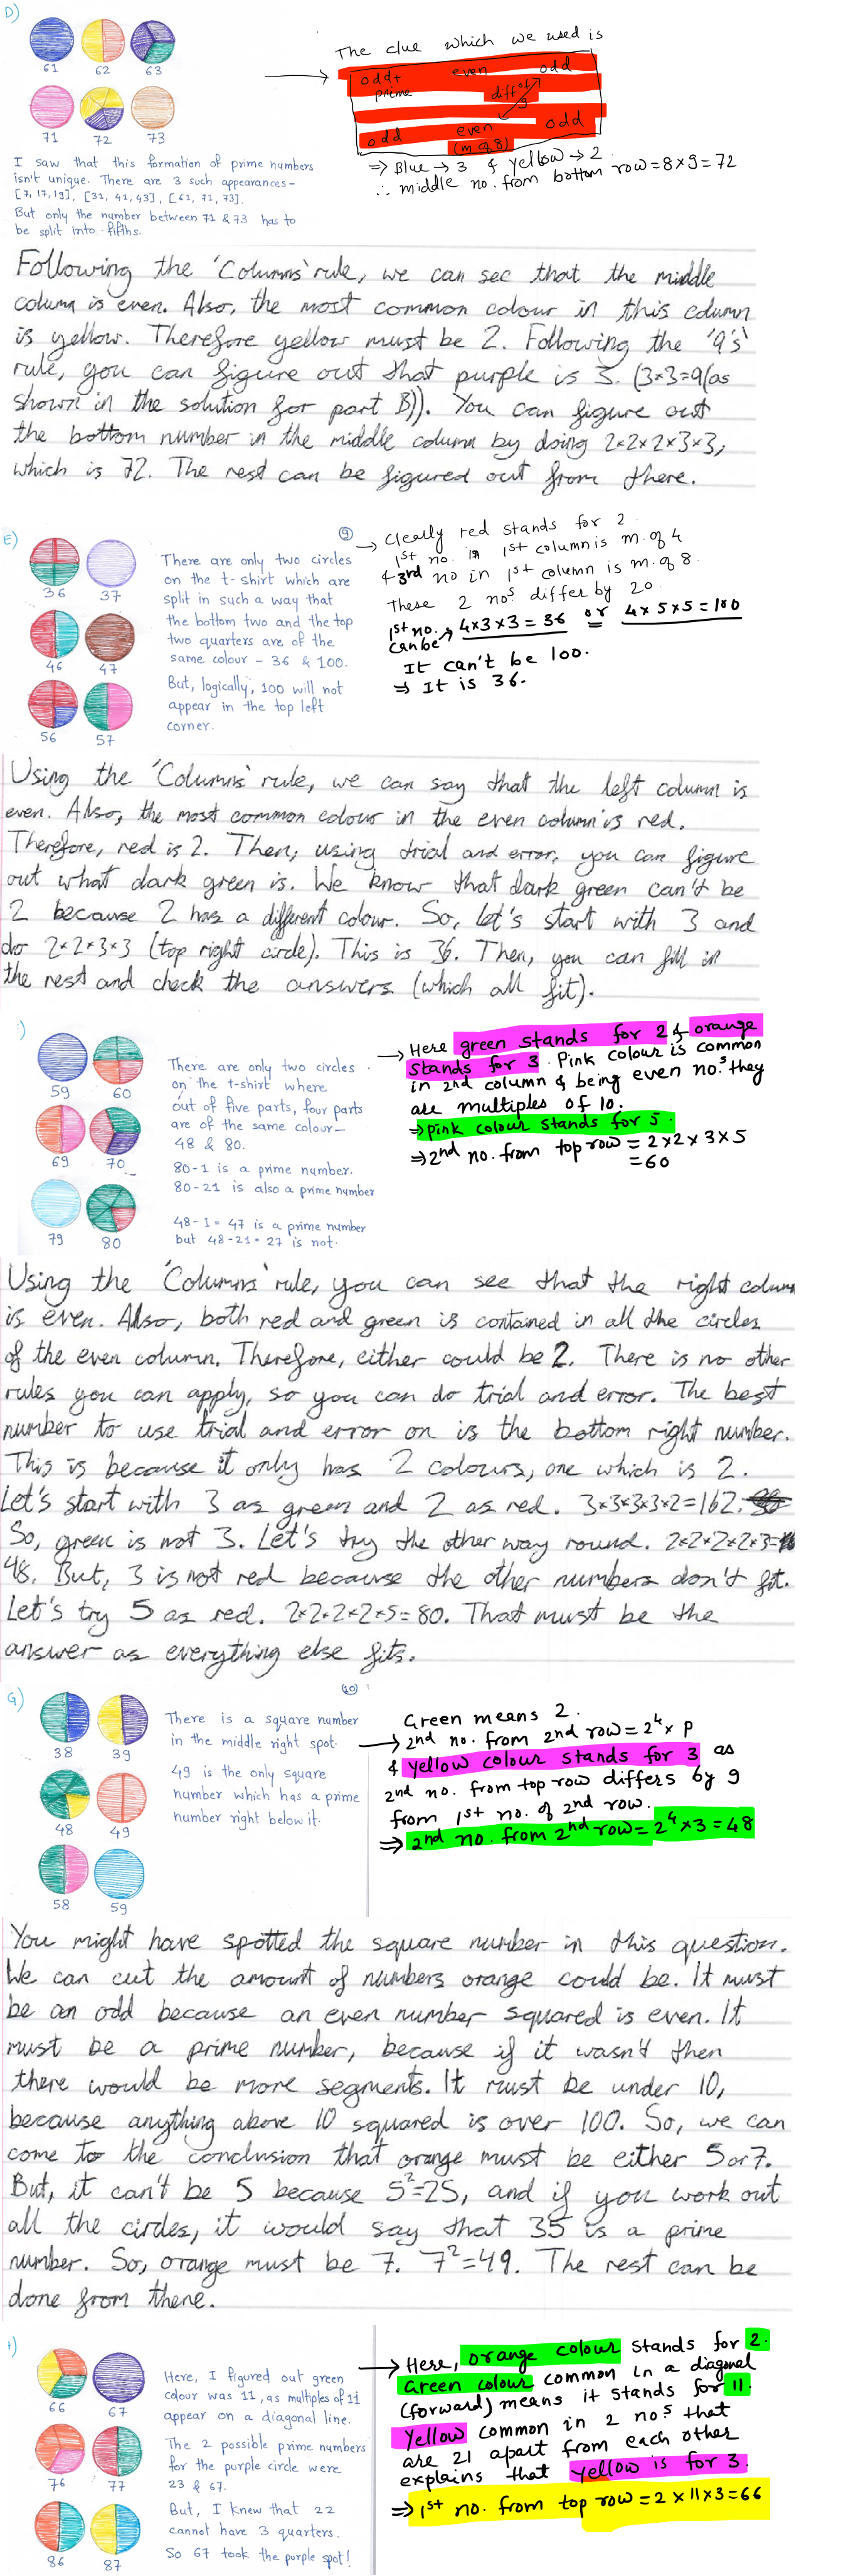 D)
61 62 63
71 72 73
The clue which we used is
odd+ even odd
prime
diff of 9
odd even odd
(m. of 8)
⇒ Blue → 3 & yellow → 2
∴ middle no. from bottom row = 8 × 9 = 72
I saw that this formation of prime numbers
isn't unique. There are 3 such appearances-
[7, 17, 19], [31, 41, 43], [61, 71, 73].
But only the number between 71 & 73 has to
be split into fifths.
Following the 'Columns' rule, we can see that the middle
column is even. Also, the most common colour in this column
is yellow. Therefore yellow must be 2. Following the '9's'
rule, you can figure out that purple is 3. (3×3=9(as
shown in the solution for part B)). You can figure out
the bottom number in the middle column by doing 2×2×2×3×3,
which is 72. The rest can be figured out from there.
E)
36 37
46 47
56 57
There are only two circles
on the t-shirt which are
split in such a way that
the bottom two and the top
two quarters are of the
same colour – 36 & 100.
But, logically, 100 will not
appear in the top left
corner.
⑨
→ Cleally red stands for 2
1st no. in 1st column is m. of 4
& 3rd no in 1st column is m. of 8.
These 2 nos differ by 20
1st no. can be → 4×3×3 = 36 or 4×5×5 = 100
It can't be 100.
⇒ It is 36.
Using the 'Columns' rule, we can say that the left column is
even. Also, the most common colour in the even column is red.
Therefore, red is 2. Then, using trial and error, you can figure
out what dark green is. We know that dark green can't be
2 because 2 has a different colour. So, let's start with 3 and
do 2×2×3×3 (top right circle). This is 36. Then, you can fill in
the rest and check the answers (which all fit).
59 60
69 70
79 80
There are only two circles
on the t-shirt where
out of five parts, four parts
are of the same colour–
48 & 80.
80-1 is a prime number.
80-21 is also a prime number
48-1 = 47 is a prime number
but 48-21 = 27 is not.
→ Here green stands for 2 & orange
stands for 3. Pink colour is common
in 2nd column & being even no.s they
are multiples of 10.
⇒ pink colour stands for 5
⇒ 2nd no. from top row = 2×2×3×5
=60
Using the 'Columns' rule, you can see that the right column
is even. Also, both red and green is contained in all the circles
of the even column. Therefore, either could be 2. There is no other
rules you can apply, so you can do trial and error. The best
number to use trial and error on is the bottom right number.
This is because it only has 2 colours, one which is 2.
Let's start with 3 as green and 2 as red. 3×3×3×3×2=162.
So, green is not 3. Let's try the other way round. 2×2×2×2×3=
48. But, 3 is not red because the other numbers don't fit.
Let's try 5 as red. 2×2×2×2×5=80. That must be the
answer as everything else fits.
G)
38 39
48 49
58 59
There is a square number
in the middle right spot.
49 is the only square
number which has a prime
number right below it.
⑩
Green means 2.
→ 2nd no. from 2nd row = 2⁴ × P
& yellow colour stands for 3 as
2nd no. from top row differs by 9
from 1st no. of 2nd row.
⇒ 2nd no. from 2nd row = 2⁴ × 3 = 48
You might have spotted the square number in this question.
We can cut the amount of numbers orange could be. It must
be an odd because an even number squared is even. It
must be a prime number, because if it wasn't then
there would be more segments. It must be under 10,
because anything above 10 squared is over 100. So, we can
come to the conclusion that orange must be either 5 or 7.
But, it can't be 5 because 5²=25, and if you work out
all the circles, it would say that 35 is a prime
number. So, orange must be 7. 7²=49. The rest can be
done from there.
66 67
76 77
86 87
Here, I figured out green
colour was 11, as multiples of 11
appear on a diagonal line.
The 2 possible prime numbers
for the purple circle were
23 & 67.
But, I knew that 22
cannot have 3 quarters.
So 67 took the purple spot!
→ Here, orange colour stands for 2.
Green colour common in a diagonal
(forward) means it stands for 11.
Yellow common in 2 nos that
are 21 apart from each other
explains that yellow is for 3.
⇒ 1st no. from top row = 2 × 11 × 3 = 66